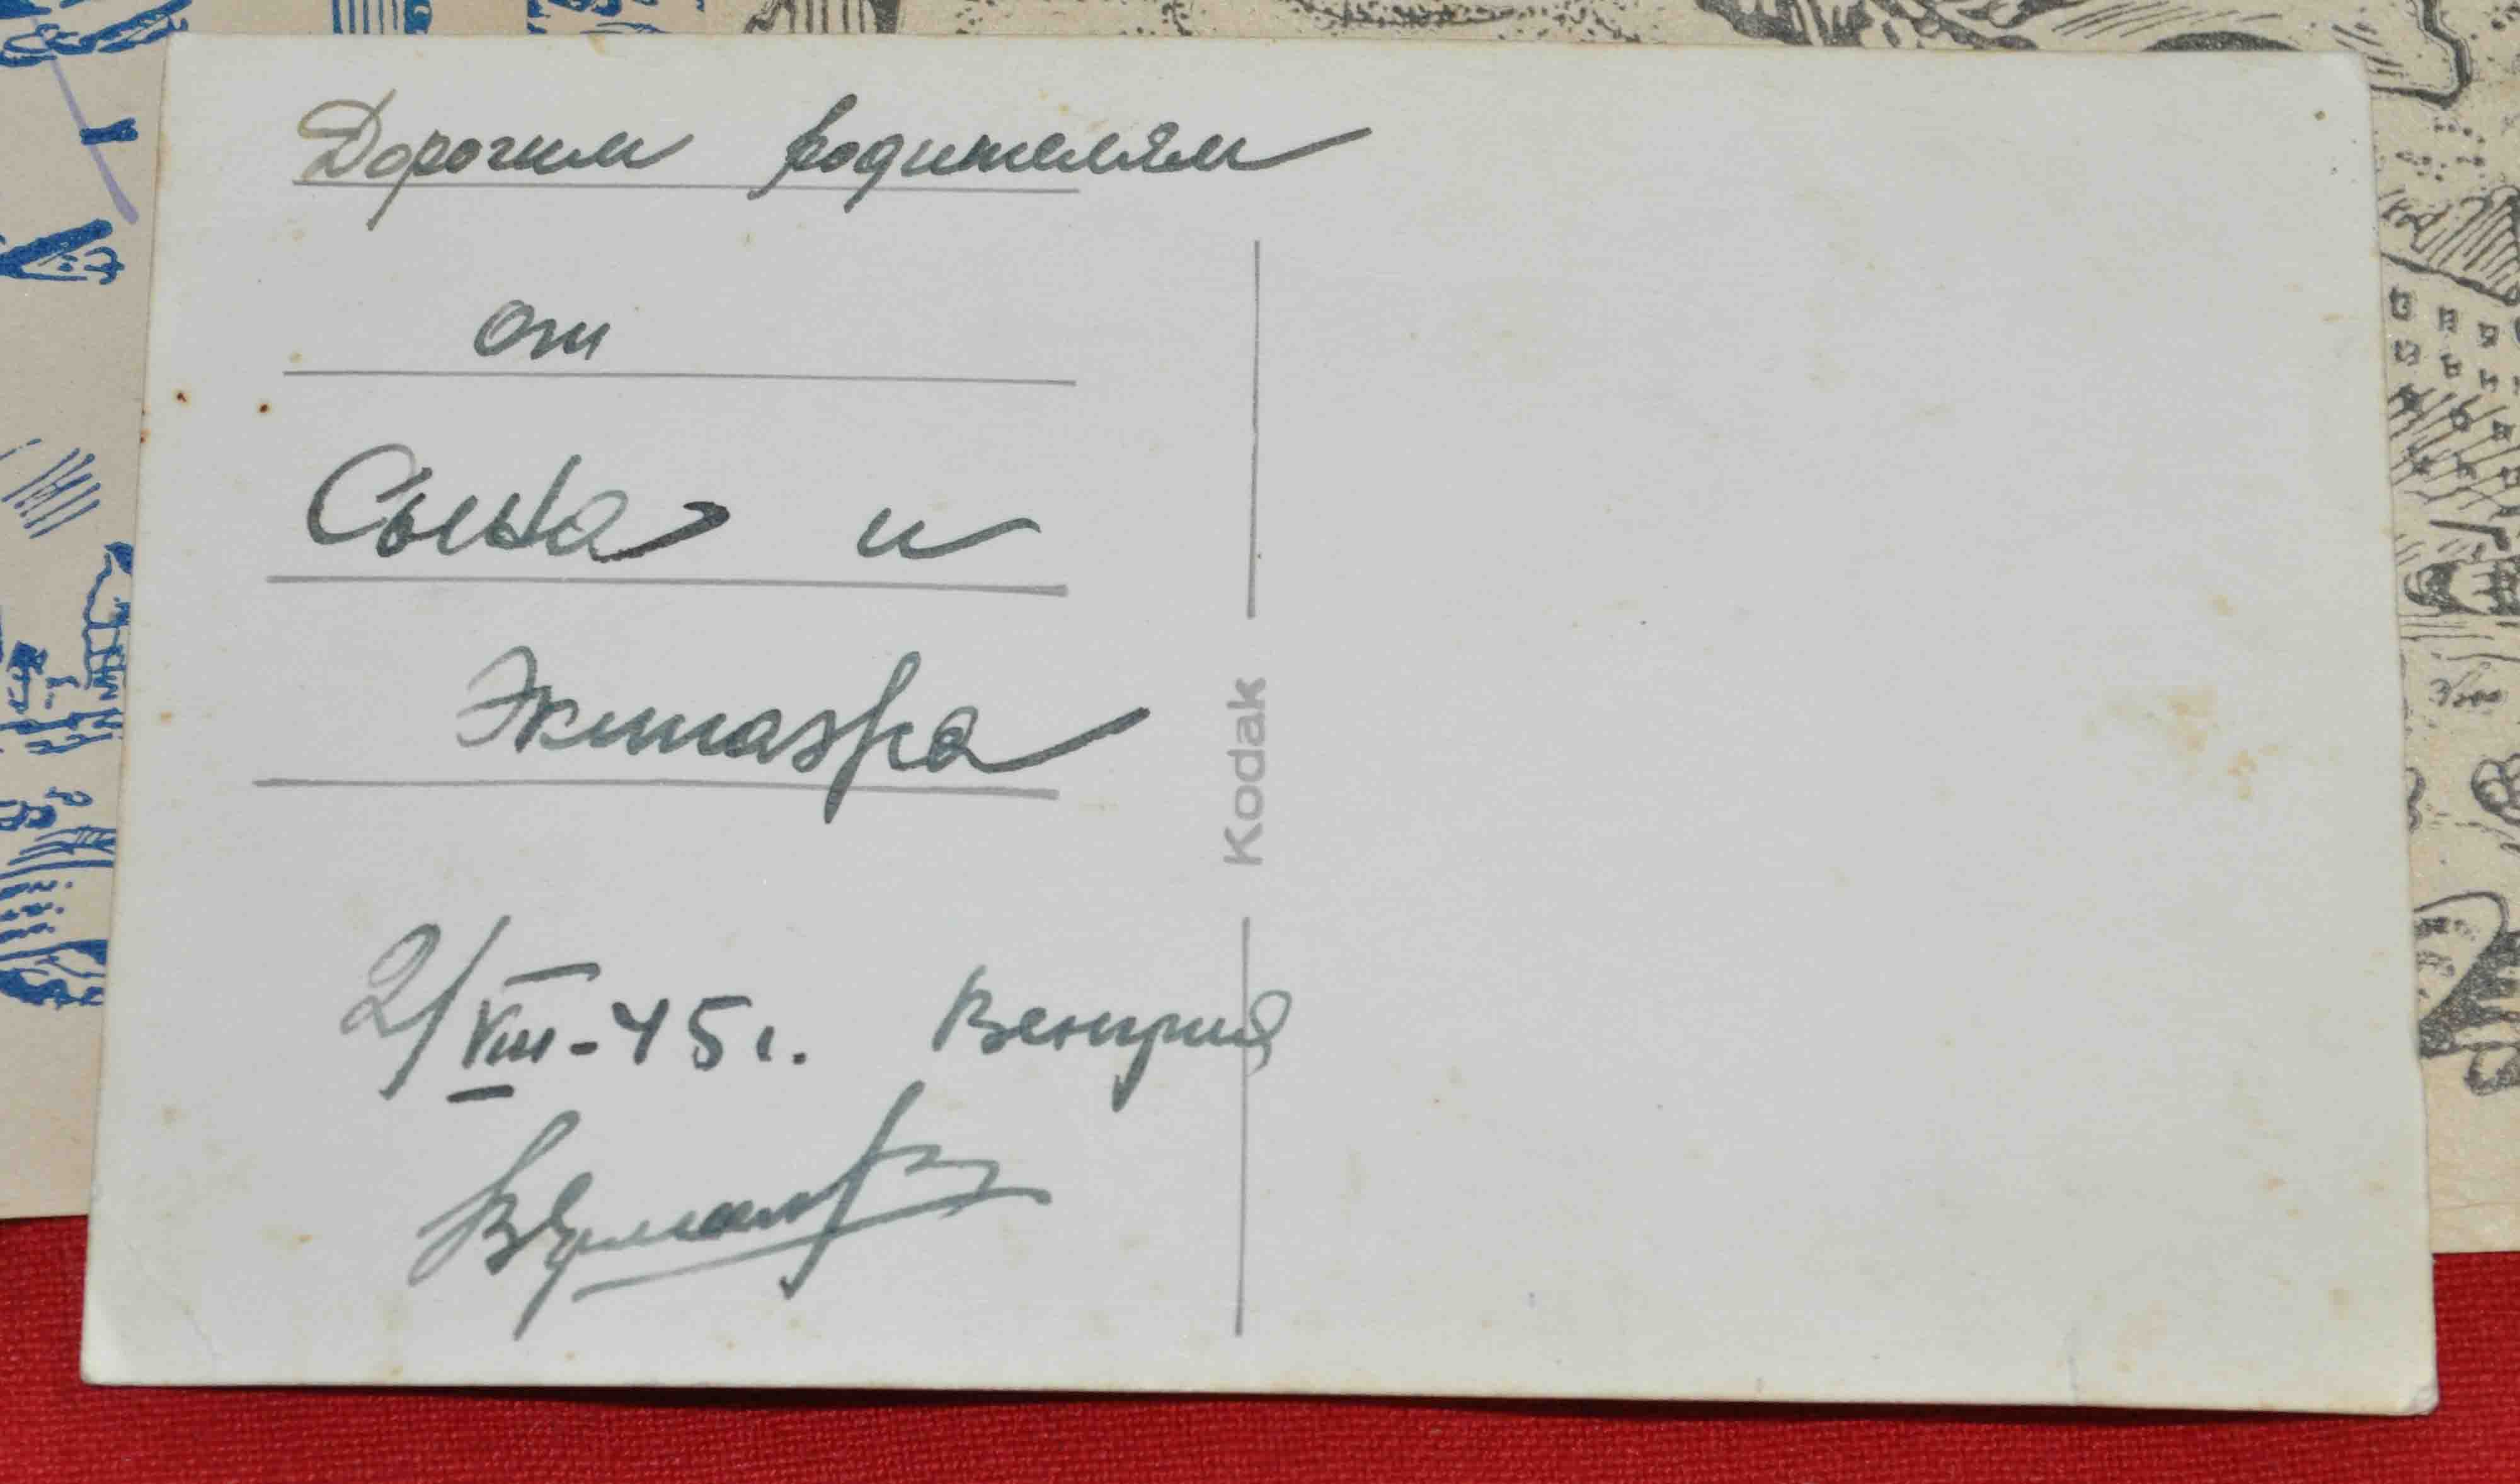 Дорогим родителям
от
Сына и
Экипажа
2/VIII-45г. Венгрия
Kodak